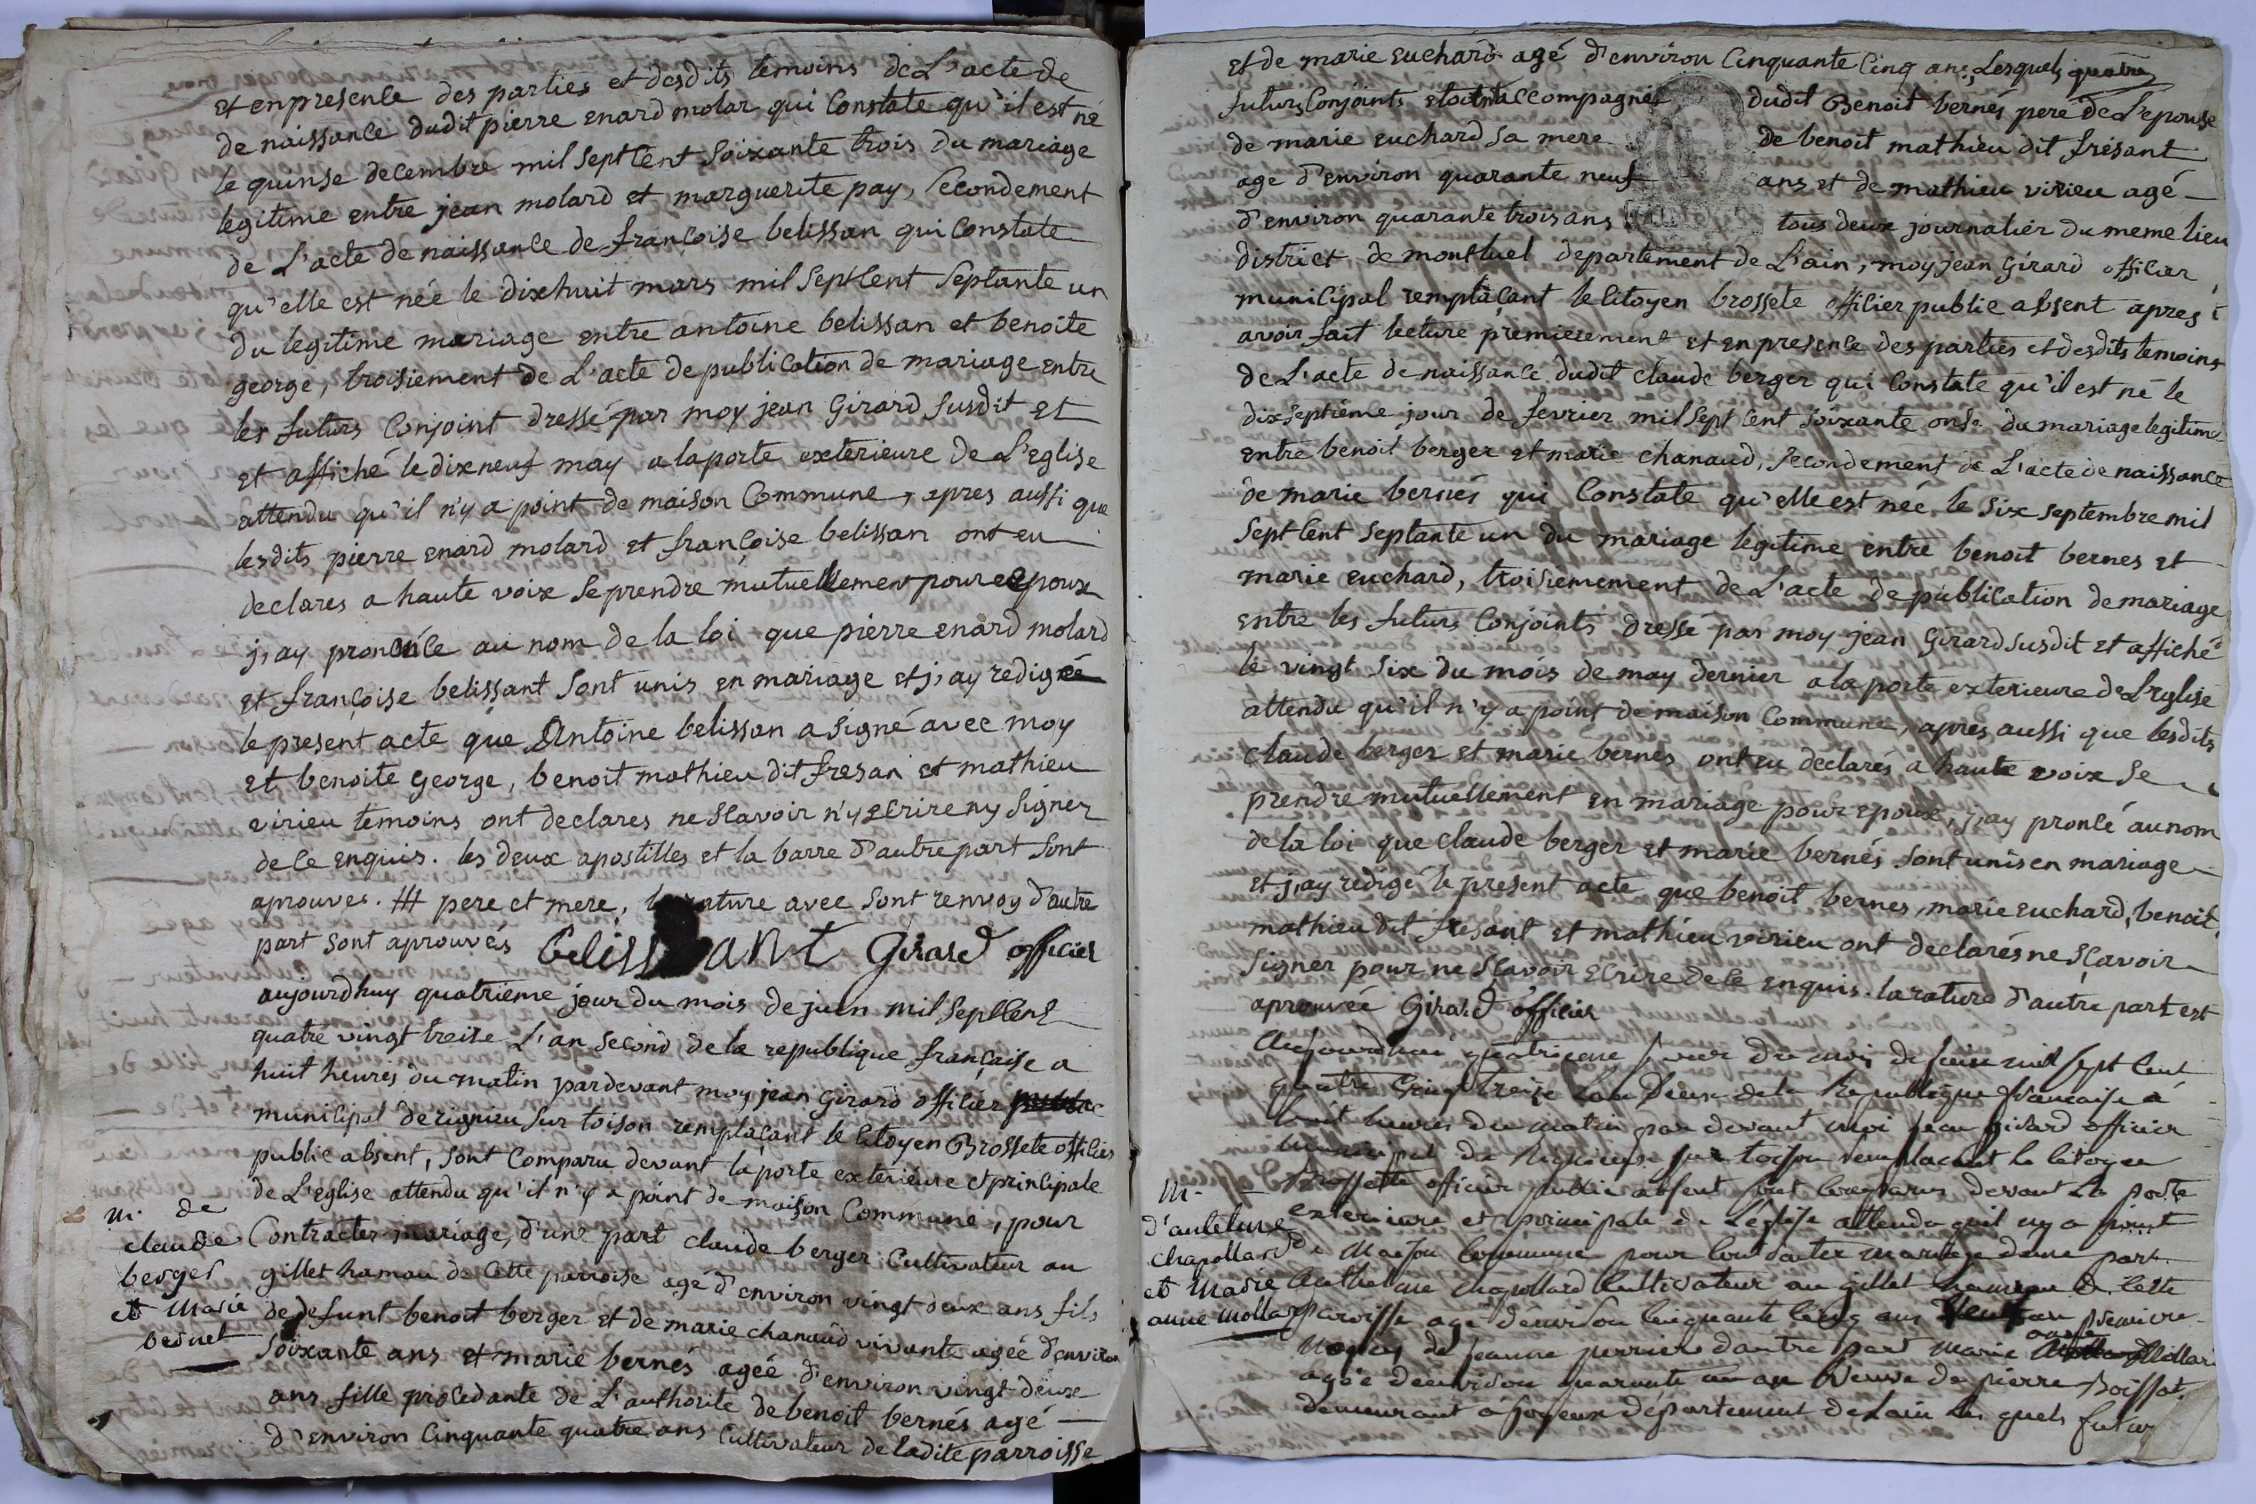 et en presence des parties et desdits temoins de L'acte de
de naissance dudit pierre enard molar qui Constate qu'il est né
le quinse decembre mil sept Cent soixante trois du mariage
legitime entre jean molard et marguerite pay, secondement
de L'acte de naissance de françoise belissan qui Constate
qu'elle est née le dixhuit mars mil sept Cent septante un
du legitime mariage entre antoine belissan et benoite
george, troisiement de L'acte de publication de mariage entre
les futurs Conjoint dressé par moy jean Girard susdit et
et affiché le dixneuf may a la porte exterieure de L'Eglise
attendu qu'il n'y a point de maison Commune, apres aussi que
lesdits pierre enard molard et françoise belissan ont eu
declares a haute voix se prendre mutuellement pour epoux
j,ay prononcé au nom de la loi que pierre enard molard
et françoise belissant sont unis en mariage et j,ay redigée
le present acte que Antoine belissan a signé avec moy
et benoite george, benoit mathieu dit fresan et mathieu
virieu temoins ont declares ne sCavoir n'y ecrire ny signer
de Ce enquis. les deux apostilles et la barre d'autre part sont
aprouves. # pere et mere, la rature avec sont renvoy d'autre
part sont aprouvés belissant Girard officier
aujourdhuy quatrieme jour du mois de juin mil sept Cent
quatre vingt treise L'an second de la republique française a
huit heures du matin pardevant moy jean Girard officier
municipal de rignieu sur toison remplaçant le Citoyen Brossete officier
public absent, sont Comparu devant la porte exterieure et principale
de L'eglise attendu qu'il n'y a point de maison Commune, pour
m. de
claude
berger
et Marie
bernet
Contracter mariage, d'une part claude berger Cultivateur au
gillet hamau de Cette parroise agé d'environ vingt deux ans fils
de defunt benoit berger et de marie chanaud vivante agée d'environ
soixante ans et marie bernés agée d'environ vingt-deux
ans fille procedante de L'authorité de benoit bernés agé
d'environ Cinquante quatre ans Cultivateur de ladite parroisse
et de marie Euchard agé d'environ Cinquante Cinq ans, Lesquels quatre
futurs Conjoints etoint accompagnés dudit Benoit bernés pere de L'epouse
de marie euchard sa mere de benoit mathieu dit frésant
age d'environ quarante neuf ans et de mathieu virieu agé
d'environ quarante trois ans tous deux journalier du meme lieu
district de montluel departement de L'ain, moy jean Girard officier
municipal remplaçant le Citoyen brossete officier public absent apres
avoir fait lecture premierement et en presence des parties et desdits temoins
de L'acte de naissance dudit claude berger qui Constate qu'il est né le
dixseptiéme jour de fevrier mil sept Cent soixante onse du mariage legitime
entre benoit berger et marie chanaud, secondement de L'acte de naissance
de marie bernés qui Constate qu'elle est née le six septembre mil
sept Cent septante un du mariage legitime entre benoit bernes et
marie euchard, troisiemement de L'acte de publication de mariage
entre les futurs Conjoints dressé par moy jean Girard susdit et affiché
le vingt six du mois de may dernier a la porte exterieure de L'Eglise
attendu qu'il n'y a point de maison Commune, apres aussi que lesdits
claude berger et marie bernes ont eu declarés a haute voix se
prendre mutuellement en mariage pour epoux, j,ay pronCé au nom
de la loi que claude berger et marie bernés sont unis en mariage
et j,ay redigé le present acte que benoit bernes, marie euchard, benoit
mathieu dit fresant et mathieu virieu ont declarés ne sCavoir
signer pour ne sCavoir ecrire de Ce enquis. la rature d'autre part est
aprouvée Girard officier
Aujourdhui quatrieme jour du mois de juin mil sept Cent
quatre vingt treize L'an Deux de la Republique française à
huit heures du matin par devant moi jean girard officier
municipal de Rignieux sur toison remplacant le Citoyen
Brossette officier public absent sont Comparus devant La porte
exterieure et principale de L'eglise attendu quil ny a point
m.
d'anteleme
chapollard
et Marie
anne mollard
de Maison Commune pour Contracter mariage d'une part
Anthelme chapollard Cultivateur au gillet hameau de Cette
paroisse agé d'environ Cinquante Cinq ans Veuf en premiere
Noces de jeanne perrier d'autre part Marie anne Mollard
agée d'environ quarante un an Veuve de pierre Boissot
demeurant a joyeux département de Lain les quels futur